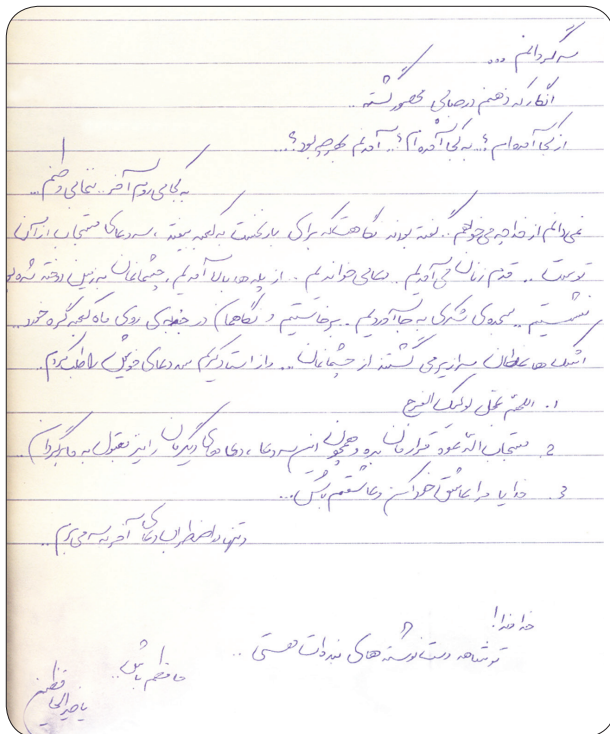 سرگردانم ...
انگار که ذهنم درجایی محصور گشته..
از کجا آمده ام؟.. به کجا آمده ام؟.. آمدنم بهر چه بود؟...
به کجا می روم آخر.. ننمایی وطنم...
نمی دانم از خدا چه می خواهم.. گفته بودند نگاهت که برای بار نخست به کعبه بیفتد، سه دعای مستجاب از آن
توست.. قدم زنان می آمدیم.. دعایی خواندیم.. از پله ها بالا آمدیم، چشمانمان به زمین دوخته شده بود
نشستیم.. سجده ی شکری به جا آوردیم.. برخاستیم و نگاهمان در جلوه ی روی ماه کعبه گره خورد..
اشک ها غلطان سرازیر می گشتند از چشمانمان.. و از استاد کریم سه دعای خویش را طلب کردم.
1. اللهم عجل لولیک الفرج
2. مستجاب الدعوه قرارمان بده و همچون این سه دعا، دعاهای دیگرمان را نیز مقبول به ما بگردان..
3. خدایا مرا عاشق خود کن و عاشقم باش...
و تنها در اضطراب دعای آخر به سر می برم..
خدا خدا!
تو شاهد دست نوشته های بنده ات هستی..
حافظم باش..
یا خیر الحافظین